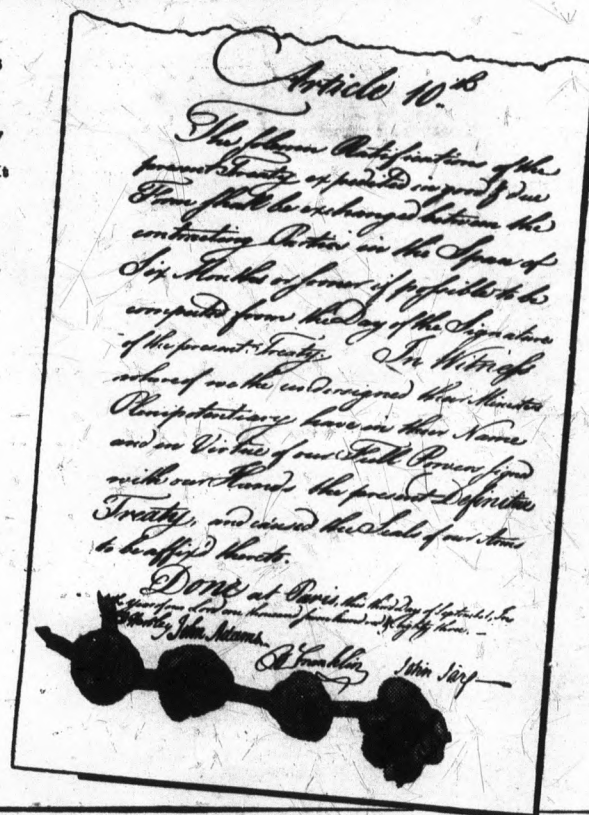 Article 10.th
The solemn Ratifications of the
present Treaty expedited in good & due
Form shall be exchanged between the
contracting Parties in the Space of
Six Months or sooner if possible to be
computed from the Day of the Signature
of the present Treaty. In Witness
whereof we the undersigned their Ministers
Plenipotentiary have in their Name
and in Virtue of our Full Powers signed
with our Hands the present Definitive
Treaty, and caused the Seals of our Arms
to be affix'd thereto.
Done at Paris, this third Day of September, In
the Year of our Lord one thousand seven hundred & Eighty three. —
D Hartley John Adams
B Franklin John Jay —